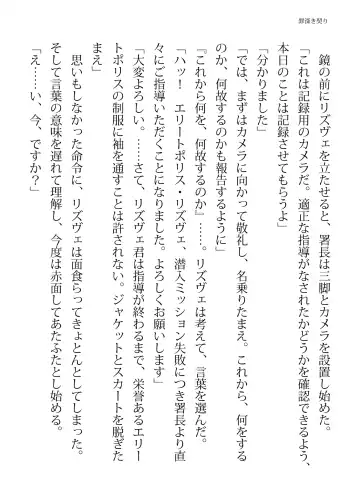 罪滌き契り
鏡の前にリズヴェを立たせると、署長は三脚とカメラを設置し始めた。
「これは記録用のカメラだ。適正な指導がなされたかどうかを確認できるよう、
本日のことは記録させてもらうよ」
「分かりました」
「では、まずはカメラに向かって敬礼し、名乗りたまえ。これから、何をする
のか、何故するのかも報告するように」
『これから何を、何故するのか』……。リズヴェは考えて、言葉を選んだ。
「ハッ！　エリートポリス・リズヴェ、潜入ミッション失敗につき署長より直
々にご指導いただくことになりました。よろしくお願いします」
「大変よろしい。……さて、リズヴェ君は指導が終わるまで、栄誉あるエリー
トポリスの制服に袖を通すことは許されない。ジャケットとスカートを脱ぎた
まえ」
思いもしなかった命令に、リズヴェは面食らってきょとんとしてしまった。
そして言葉の意味を遅れて理解し、今度は赤面してあたふたとし始める。
「え……い、今、ですか？」